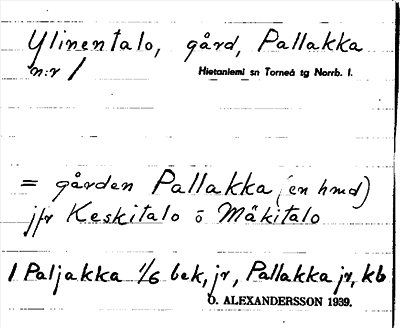 Ylinentalo, gård, Pallakka
n:r 1 Hietaniemi sn Torneå tg Norrb. l.
= gården Pallakka (en hmd)
jfr Keskitalo o Mäkitalo
1 Paljakka 1/6 bek, jr, Pallakka jr, kb
O. ALEXANDERSSON 1939.